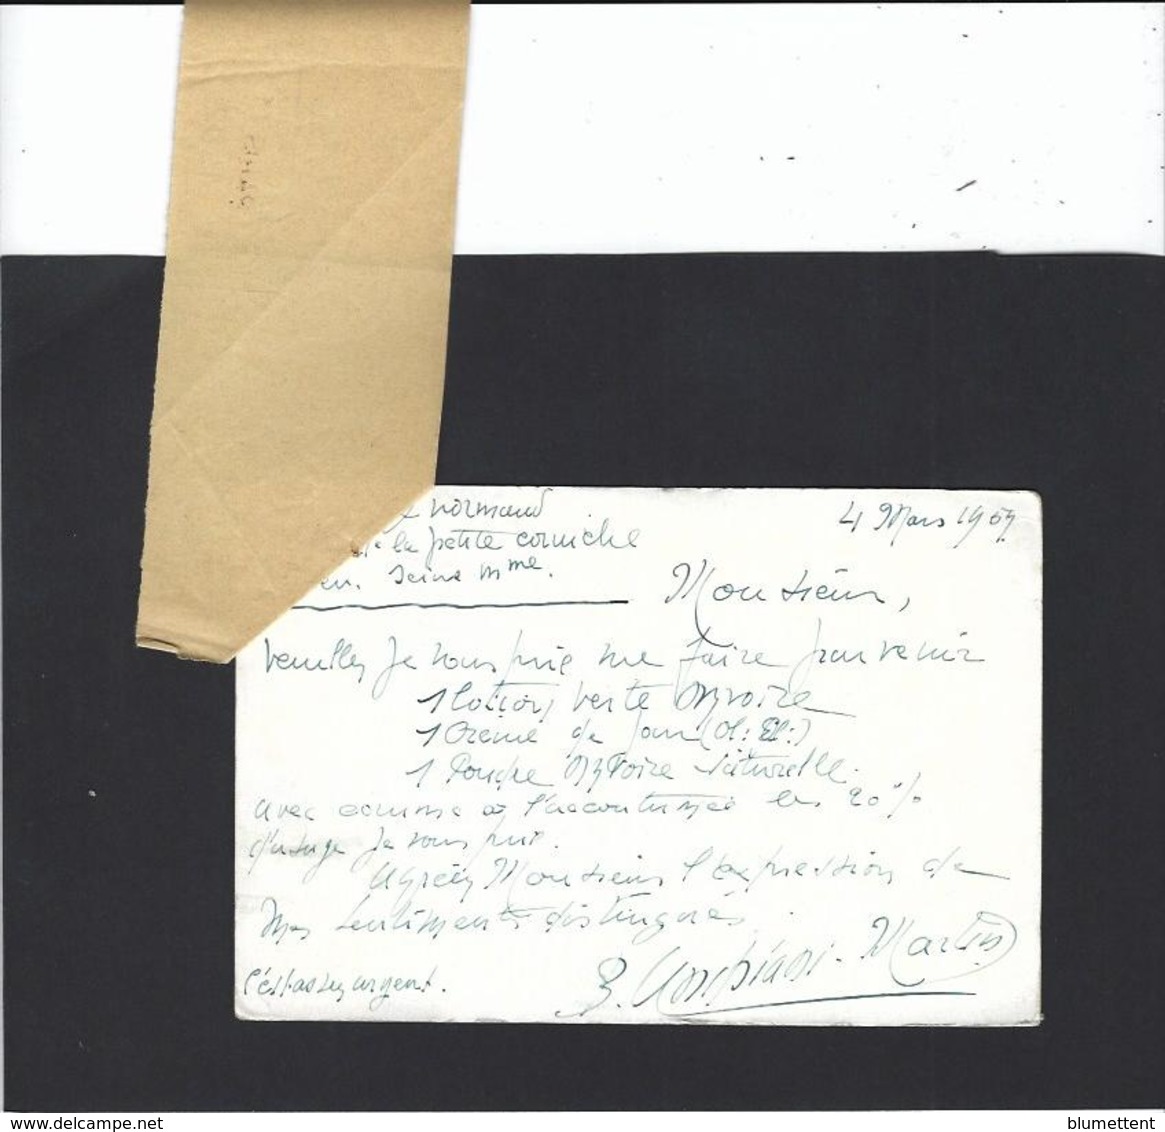 normand
de la petite corniche
en. Seine Mme.
4 Mars 1959
Monsieur,
Veuillez je vous prie me faire parvenir
1 Lotion verte
1 Crème de jour
1 Poudre naturelle
avec comme à l'accoutumée les 20%
d'usage je vous prie.
Agréez Monsieur l'expression de
mes sentiments distingués.
c'est assez urgent.
Martin
www.delcampe.net
blumettent